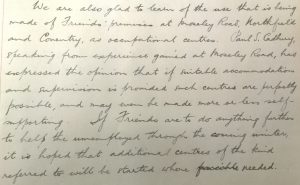 We are also glad to learn of the use that is being
made of Friends' premises at Moseley Road, Northfield
and Coventry, as occupational centres. Paul S. Cadbury,
speaking from experience gained at Moseley Road, has
expressed the opinion that if suitable accommodation
and supervision is provided such centres are perfectly
possible, and may even be made more or less self-
supporting. If Friends are to do anything further
to help the unemployed through the coming winter,
it is hoped that additional centres of the kind
referred to will be started where possible needed.